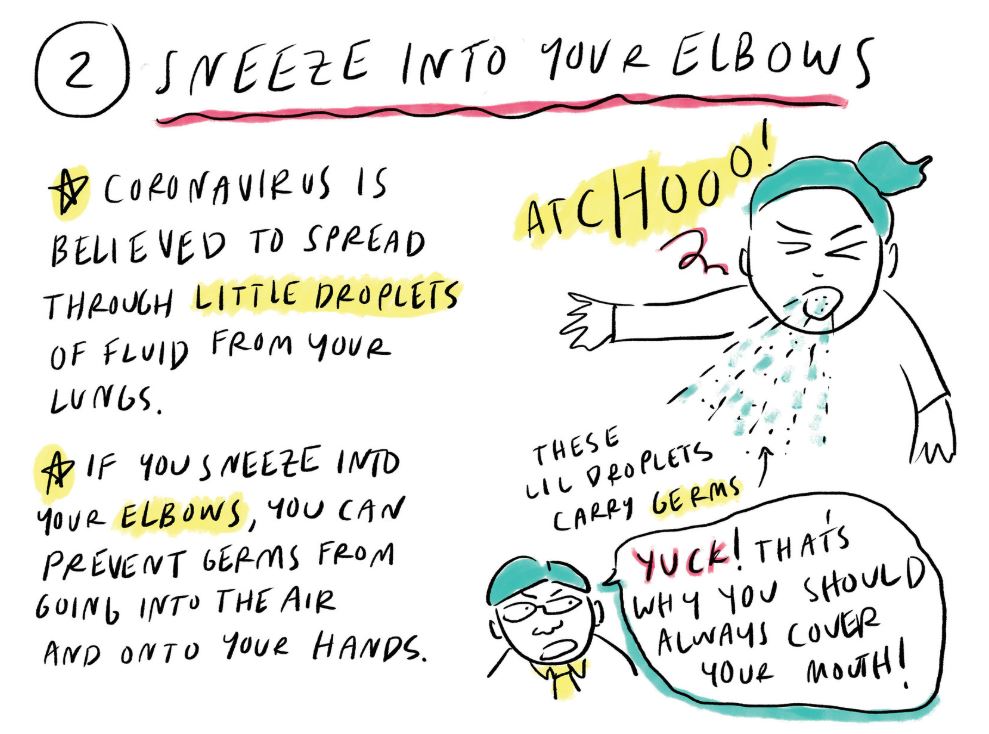 2 SNEEZE INTO YOUR ELBOWS
CORONAVIRUS IS
BELIEVED TO SPREAD
THROUGH LITTLE DROPLETS
OF FLUID FROM YOUR
LUNGS.
IF YOU SNEEZE INTO
YOUR ELBOWS, YOU CAN
PREVENT GERMS FROM
GOING INTO THE AIR
AND ONTO YOUR HANDS.
ATCHOOO!
THESE
LIL DROPLETS
CARRY GERMS
YUCK! THAT'S
WHY YOU SHOULD
ALWAYS COVER
YOUR MOUTH!